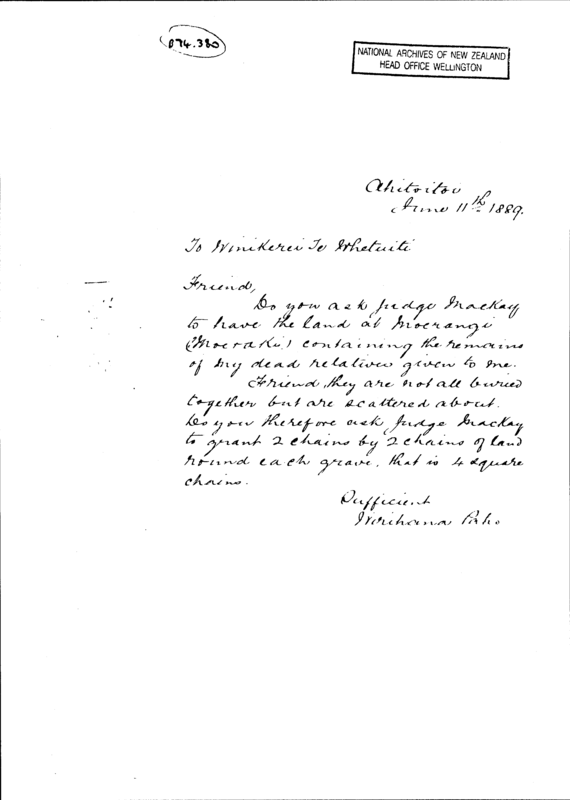 074.380
NATIONAL ARCHIVES OF NEW ZEALAND
HEAD OFFICE WELLINGTON
Ahitoitoi
June 11th 1889.
To Winikerei Te Whetuiti
Friend,
Do you ask Judge Mackay
to have the land at Moerangi
(Moeraki) containing the remains
of my dead relatives given to me.
Friend, they are not all buried
together but are scattered about.
Do you therefore ask Judge Mackay
to grant 2 chains by 2 chains of land
round each grave, that is 4 square
chains.
Sufficient
Wirihana